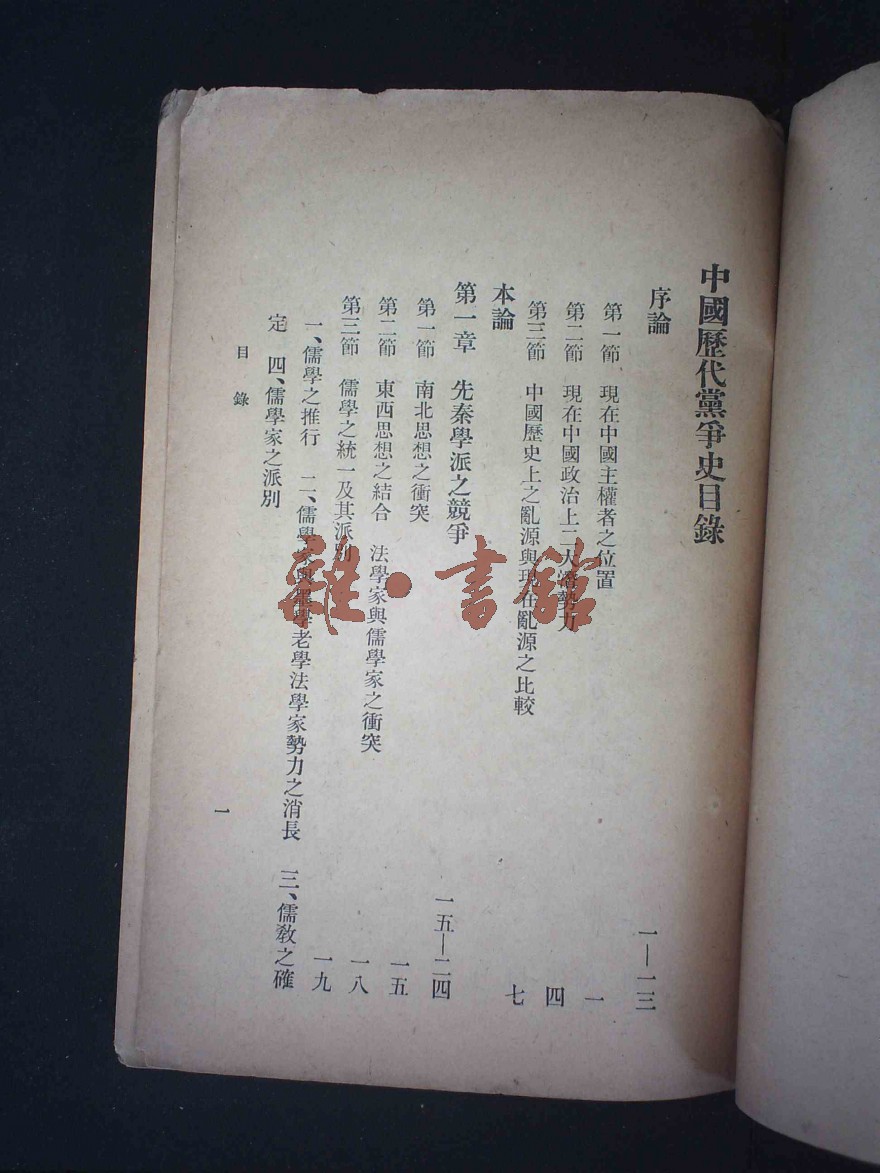 中國歷代黨爭史目錄
序論 一—一三
第一節 現在中國主權者之位置 一
第二節 現在中國政治上二大潛勢力 四
第三節 中國歷史上之亂源與現在亂源之比較 七
本論
第一章 先秦學派之競爭 一五—二四
第一節 南北思想之衝突 一五
第二節 東西思想之結合 法學家與儒學家之衝突 一八
第三節 儒學之統一及其派別 一九
一、儒學之推行 二、儒學家與墨學老學法學家勢力之消長 三、儒教之確
定 四、儒學家之派別
目錄
一
雜·書館